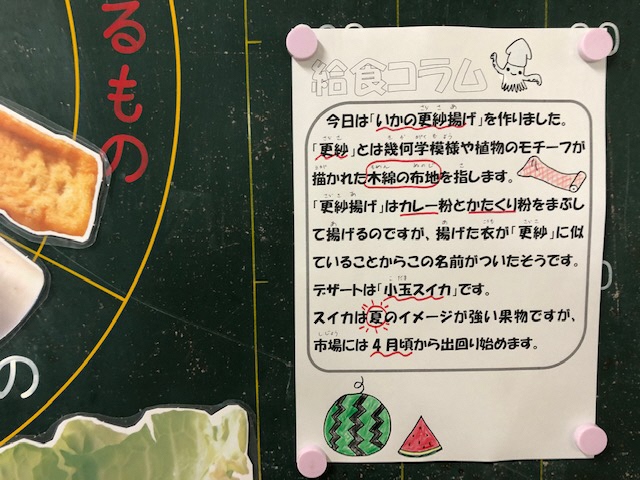 るもの
の
給食コラム
今日は「いかの更紗揚げ」を作りました。
「更紗」とは幾何学模様や植物のモチーフが
描かれた木綿の布地を指します。
「更紗揚げ」はカレー粉とかたくり粉をまぶし
て揚げるのですが、揚げた衣が「更紗」に似
ていることからこの名前がついたそうです。
デザートは「小玉スイカ」です。
スイカは夏のイメージが強い果物ですが、
市場には4月頃から出回り始めます。